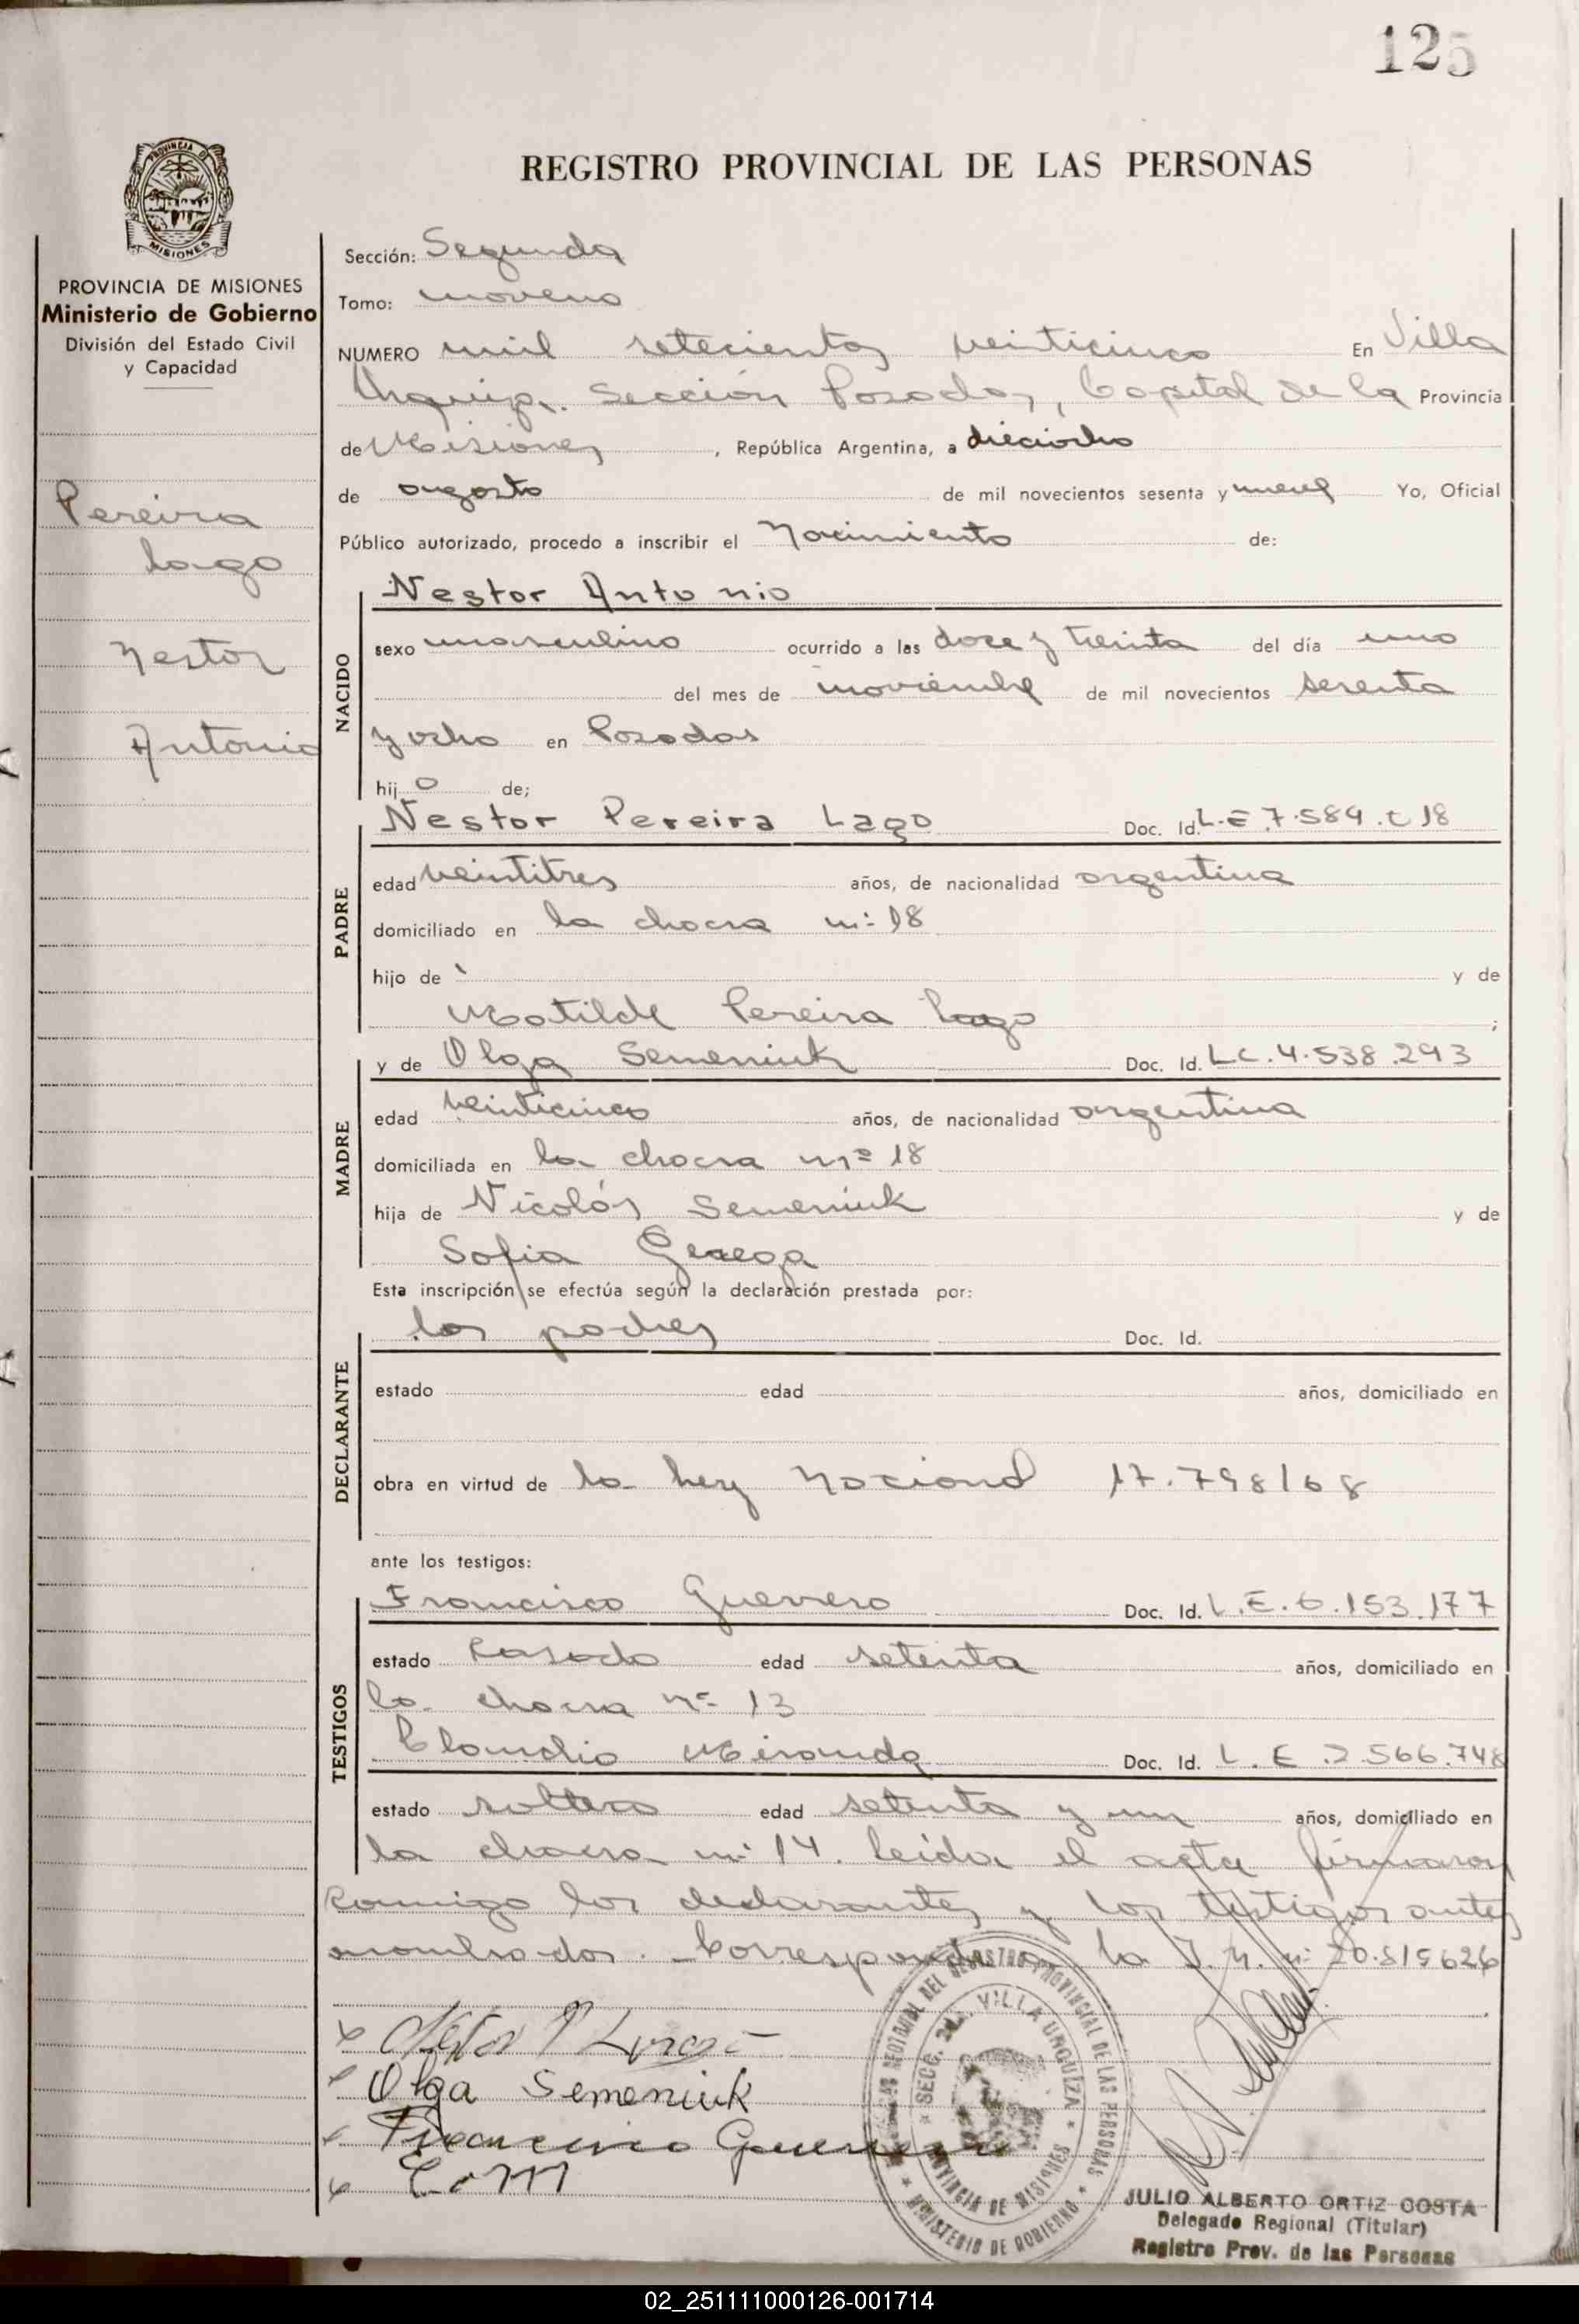 125
PROVINCIA DE
MISIONES
REGISTRO PROVINCIAL DE LAS PERSONAS
PROVINCIA DE MISIONES
Ministerio de Gobierno
División del Estado Civil
y Capacidad
Pereira
Lago
Nestor
Antonio
Sección: Segunda
Tomo: noveno
NUMERO mil setecientos veinticinco En Villa
Urquiza. Sección Posadas, Capital de la Provincia
de Misiones, República Argentina, a dieciocho
de agosto de mil novecientos sesenta y nueve Yo, Oficial
Público autorizado, procedo a inscribir el Nacimiento de:
NACIDO
Nestor Antonio
sexo masculino ocurrido a las doce y treinta del día uno
del mes de noviembre de mil novecientos sesenta
y ocho en Posadas
hijo de;
PADRE
Nestor Pereira Lago Doc. Id. L.E 7.584.
edad veintitres años, de nacionalidad argentina
domiciliado en la chacra nº 18
hijo de y de
Matilde Pereira Lago ;
MADRE
y de Olga Semeniuk Doc. Id. L.C. 4.538.293
edad veinticinco años, de nacionalidad argentina
domiciliada en la chacra nº 18
hija de Nicolás Semeniuk y de
Sofia
Esta inscripción se efectúa según la declaración prestada por:
DECLARANTE
los padres Doc. Id.
estado edad años, domiciliado en
obra en virtud de la Ley Nacional 17.798/68
ante los testigos:
TESTIGOS
Francisco Guerrero Doc. Id. L.E. 6.153.177
estado Casado edad setenta años, domiciliado en
la chacra nº 13
Claudio Miranda Doc. Id. L.E. 2.566.748
estado soltero edad setenta y un años, domiciliado en
la chacra nº 14. Leida el acta firmaron
conmigo los declarantes y los testigos antes
nombrados. Corresponde a la I.N. nº 20.815626
Nestor P Lago
Olga Semeniuk
Francisco Guerrero
C. M
DEL REGISTRO PROVINCIAL DE LAS PERSONAS
MINISTERIO DE GOBIERNO
SECC. 2da. VILLA URQUIZA
PROVINCIA DE MISIONES
JULIO ALBERTO ORTIZ COSTA
Delegado Regional (Titular)
Registro Prov. de las Personas
02_251111000126-001714